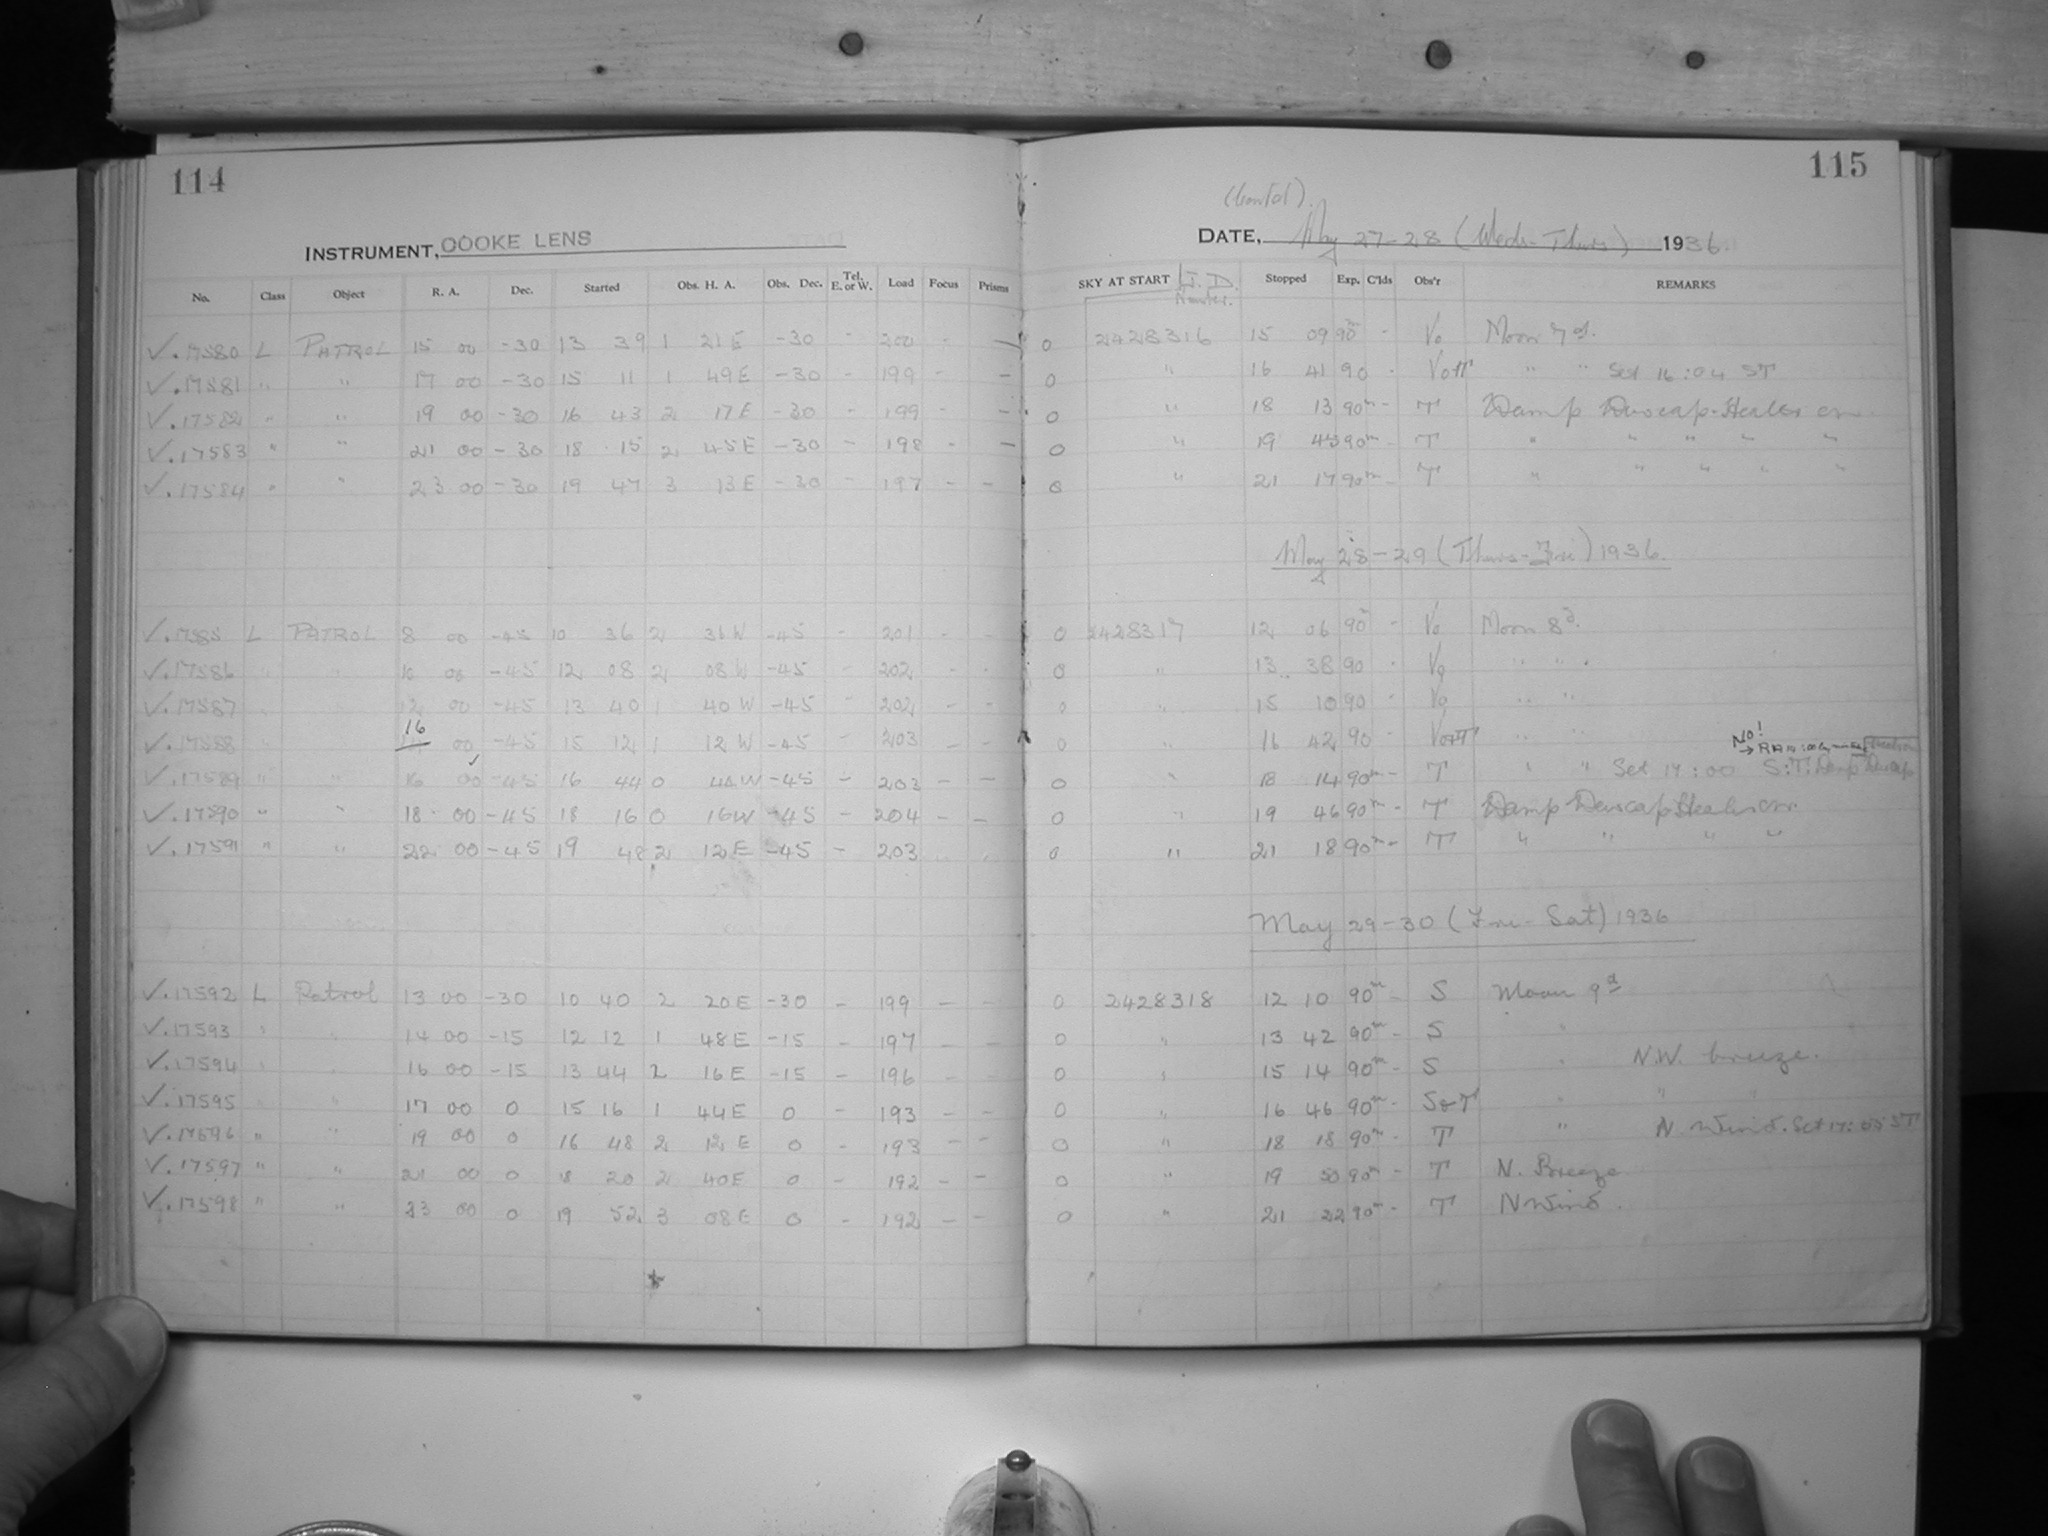 114
INSTRUMENT, COOKE LENS
No. Class Object R. A. Dec. Started Obs. H. A. Obs. Dec. Tel. E. or W. Load Focus Prisms
✓.17580 L PATROL 15 00 -30 13 39 1 21 E -30 - 200 - -
✓.17581 " " 17 00 -30 15 11 1 49 E -30 - 199 - -
✓.17582 " " 19 00 -30 16 43 2 17 E -30 - 199 - -
✓.17583 " " 21 00 -30 18 15 2 45 E -30 - 198 - -
✓.17584 " " 23 00 -30 19 47 3 13 E -30 - 197 - -
✓.17585 L PATROL 8 00 -45 10 36 2 36 W -45 - 201 - -
✓.17586 " " 10 00 -45 12 08 2 08 W -45 - 202 - -
✓.17587 " " 12 00 -45 13 40 1 40 W -45 - 202 - -
16
✓.17588 " " 00 -45 15 12 1 12 W -45 - 203 - -
✓.17589 " " 16 00 -45 16 44 0 44 W -45 - 203 - -
✓.17590 " " 18 00 -45 18 16 0 16 W -45 - 204 - -
✓.17591 " " 22 00 -45 19 48 2 12 E -45 - 203
✓.17592 L Patrol 13 00 -30 10 40 2 20 E -30 - 199 - -
✓.17593 " " 14 00 -15 12 12 1 48 E -15 - 197 - -
✓.17594 " " 16 00 -15 13 44 2 16 E -15 - 196 - -
✓.17595 " " 17 00 0 15 16 1 44 E 0 - 193 - -
✓.17596 " " 19 00 0 16 48 2 12 E 0 - 193 - -
✓.17597 " " 21 00 0 18 20 2 40 E 0 - 192 - -
✓.17598 " " 23 00 0 19 52 3 08 E 0 - 192 - -
115
(Contd).
DATE, May 27-28 (Weds-Thurs) 1936.
SKY AT START J. D. Number. Stopped Exp. C'lds Obs'r REMARKS
0 2428316 15 09 90m - Vo Moon 7d.
0 " 16 41 90 - Vo&T " " Set 16:04 ST
0 " 18 13 90m - T Damp Dewcap-Heater on.
0 " 19 45 90m - T " " " " "
0 " 21 17 90m - T " " " " "
May 28-29 (Thurs-Fri) 1936.
0 2428317 12 06 90m - Vo Moon 8d.
0 " 13 38 90 - Vo " "
0 " 15 10 90 - Vo " "
0 " 16 42 90 - Vo&T " " No!
0 " 18 14 90m - T " " Set 17:00 S:T: Damp Dewcap
0 " 19 46 90m - T Damp Dewcap Heater on.
0 " 21 18 90m - T " " " "
May 29-30 (Fri-Sat) 1936
0 2428318 12 10 90m - S Moon 9d
0 " 13 42 90m - S "
0 " 15 14 90m - S " N.W. breeze.
0 " 16 46 90m - S&T " " "
0 " 18 18 90m - T " N. Wind. Set 17:55 ST
0 " 19 50 90m - T N. Breeze
0 " 21 22 90m - T N Wind.